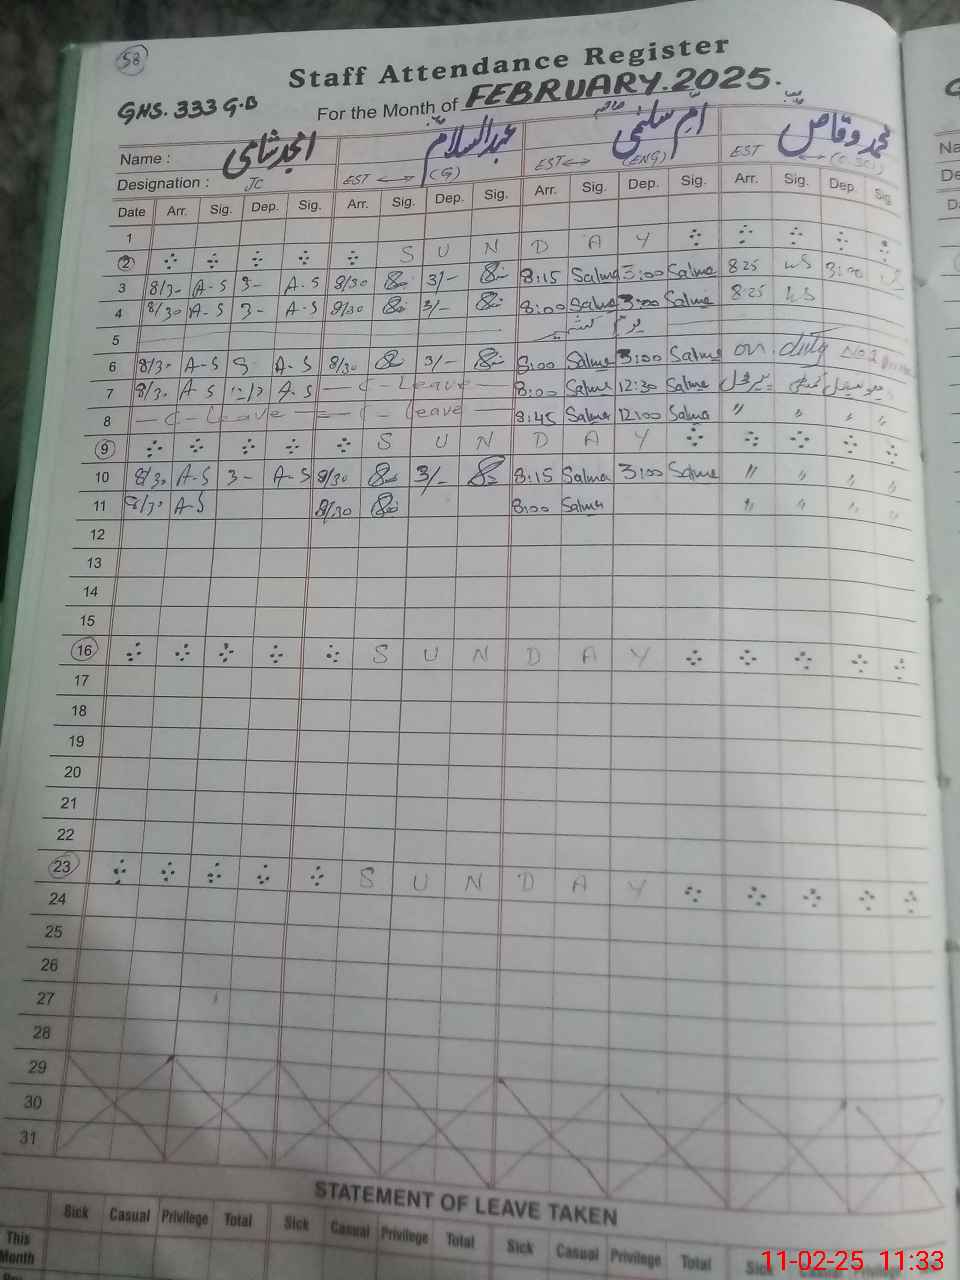 58
Staff Attendance Register
GHS. 333 G.B For the Month of FEBRUARY. 2025.
Name : امجد شامی عبدالسلام محمد وقاص
Designation : JC EST (G) EST (ENG) EST
Date Arr. Sig. Dep. Sig. Arr. Sig. Dep. Sig. Arr. Sig. Dep. Sig. Arr. Sig. Dep. Sig
1
2 S U N D A Y
3 8/30 A-S 3- A-S 8/30 3/- 8:15 Salma 3:00 Salma 8:25 WS 3:00
4 8/30 A-S 3- A-S 8/30 3/- 8:00 Salma 3:00 Salma 8:25 WS
5 یوم کشمیر
6 8/30 A-S 3- A-S 8/30 3/- 8:00 Salma 3:00 Salma on duty
7 8/30 A-S A-S — C - Leave — 8:00 Salma 12:30 Salma
8 — C - Leave — — C - Leave — 8:45 Salma 12:00 Salma " " " "
9 S U N D A Y
10 8/30 A-S 3- A-S 8/30 3/- 8:15 Salma 3:00 Salma " " " "
11 8/30 A-S 8/30 8:00 Salma " " " "
12
13
14
15
16 S U N D A Y
17
18
19
20
21
22
23 S U N D A Y
24
25
26
27
28
29
30
31
STATEMENT OF LEAVE TAKEN
Sick Casual Privilege Total Sick Casual Privilege Total Sick Casual Privilege Total Sick Casual Privilege
This
Month
11-02-25 11:33